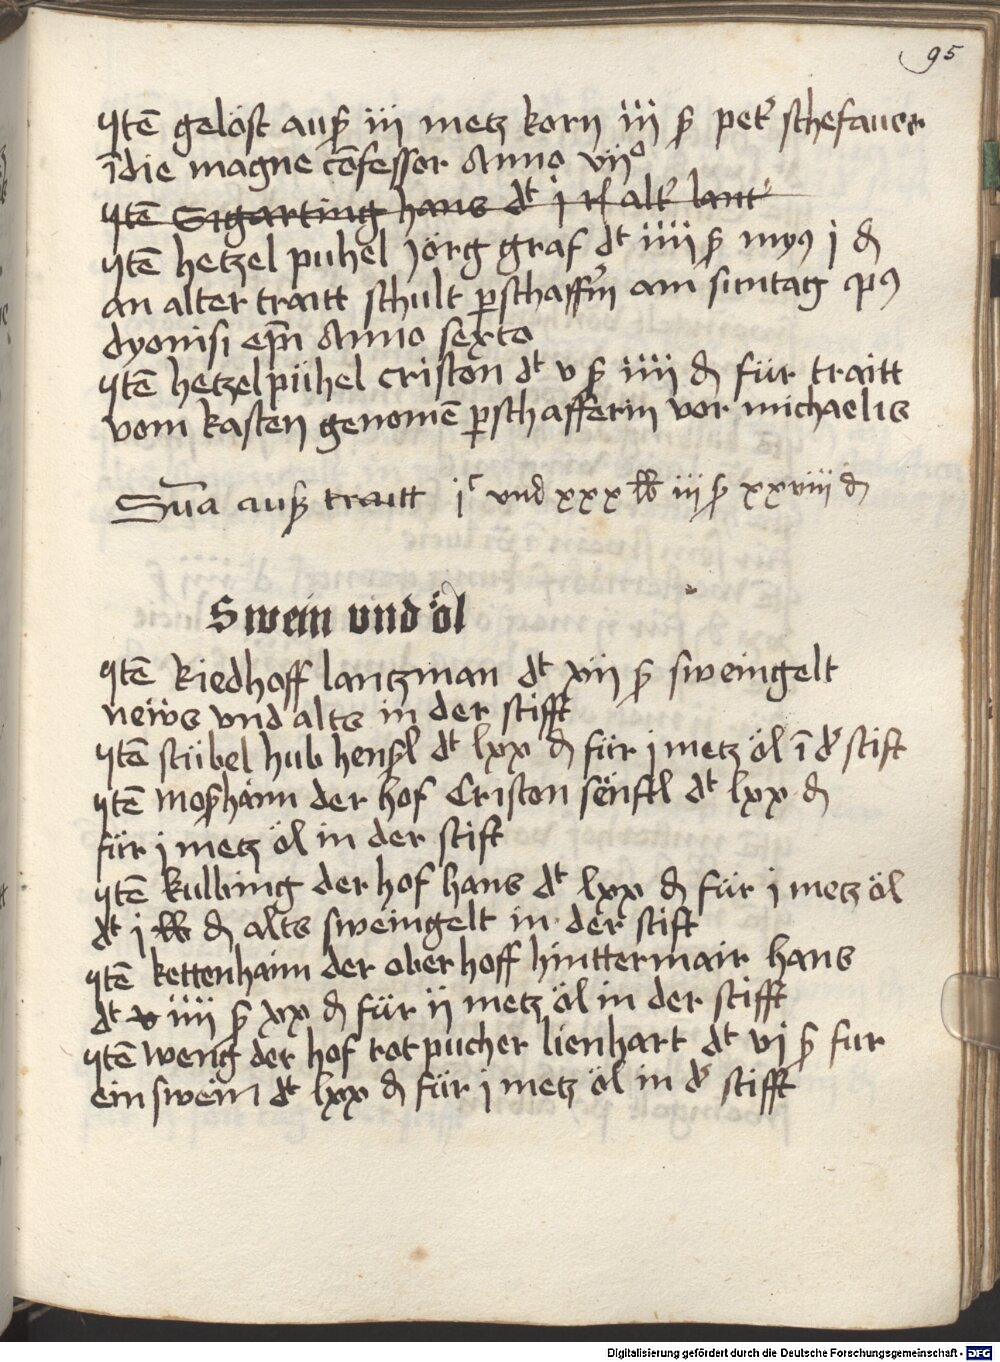 95
Itē gelöst auß iii metz korn iii ß pet' schefauer
ī die magne cōfessor Anno vii°
Itē Sigarting hans dt i rf alt' lant'
Itē hetzel puhel Jörg graf dt iiii ß my9 i d
an alter traitt schult pschafferin am suntag p9
dyonisi epīi Anno sexto
Itē hetzelpühel criston dt v ß iiii d für traitt
vom kasten genomē pschafferin vor michaelis
Sūa auß traitt ic vnd xxx lb iii ß xxviii d
Swein vnd öl
Itē kiedhoff lantzman dt xii ß sweingelt
news vnd alts in der stifft
Itē stübel hub hensl dt lxx d für i metz öl ī d' stift
Itē moßhaim der hof Criston senftl dt lxx d
für i metz öl in der stift
Itē kulbing der hof hans dt lxx d für i metz öl
dt i lb d alts sweingelt in der stift
Itē kettenhaim der oberhoff hinttermair hans
dt v iiii ß xx d für ii metz öl in der stifft
Itē weng der hof rotpucher lienhart dt vi ß fur
ein swein dt lxx d für i metz öl in d' stifft
Digitalisierung gefördert durch die Deutsche Forschungsgemeinschaft - DFG